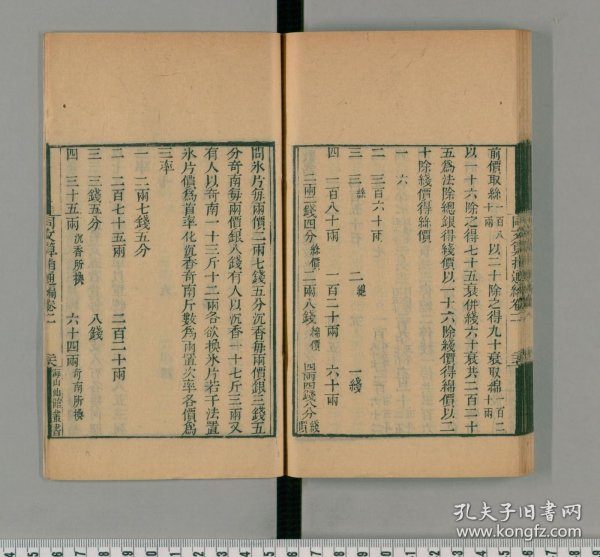 前價取絲一百八十兩以二十除之得九十衰取綿一百二十兩
以一十六除之得七十五衰併綫六十衰共二百二十
五爲法除總銀得綫價以二十六除綫價得綿價以二
十除綫價得絲價
一 六
二 三百六十兩
三 三絲 二綿 一綫
四 一百八十兩 一百二十兩 六十兩
二兩二錢四分絲價 二兩八錢綿價 四兩四錢八分綫價
問氷片每兩價二兩七錢五分沉香每兩價銀三錢五
分奇南每兩價銀八錢有人以沉香一十七斤三兩又
有人以奇南一十三斤十二兩各欲換氷片若干法置
氷片價爲首率化沉香奇南斤數爲兩置次率各價爲
三率
一 二兩七錢五分
二 二百七十五兩 二百二十兩
三 三錢五分 八錢
四 三十五兩沉香所換 六十四兩奇南所換
同文算指通編卷二
海山仙館叢書
孔夫子旧书网
www.kongfz.com